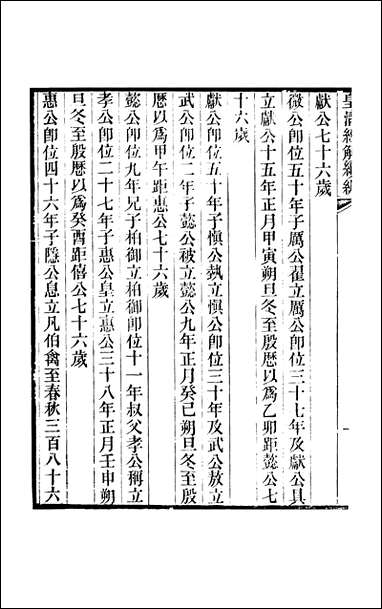 皇清經解續編
獻公七十六歲
微公卽位五十年子厲公翟立厲公卽位三十七年及獻公具
立獻公十五年正月甲寅朔旦冬至殷曆以爲乙卯距懿公七
十六歲
獻公卽位五十年子愼公埶立愼公卽位三十年及武公敖立
武公卽位二年子懿公被立懿公九年正月癸巳朔旦冬至殷
曆以爲甲午距惠公七十六歲
懿公卽位九年兄子柏御立柏御卽位十一年叔父孝公稱立
孝公卽位二十七年子惠公皇立惠公三十八年正月壬申朔
旦冬至殷曆以爲癸酉距僖公七十六歲
惠公卽位四十六年子隱公息立凡伯禽至春秋三百八十六